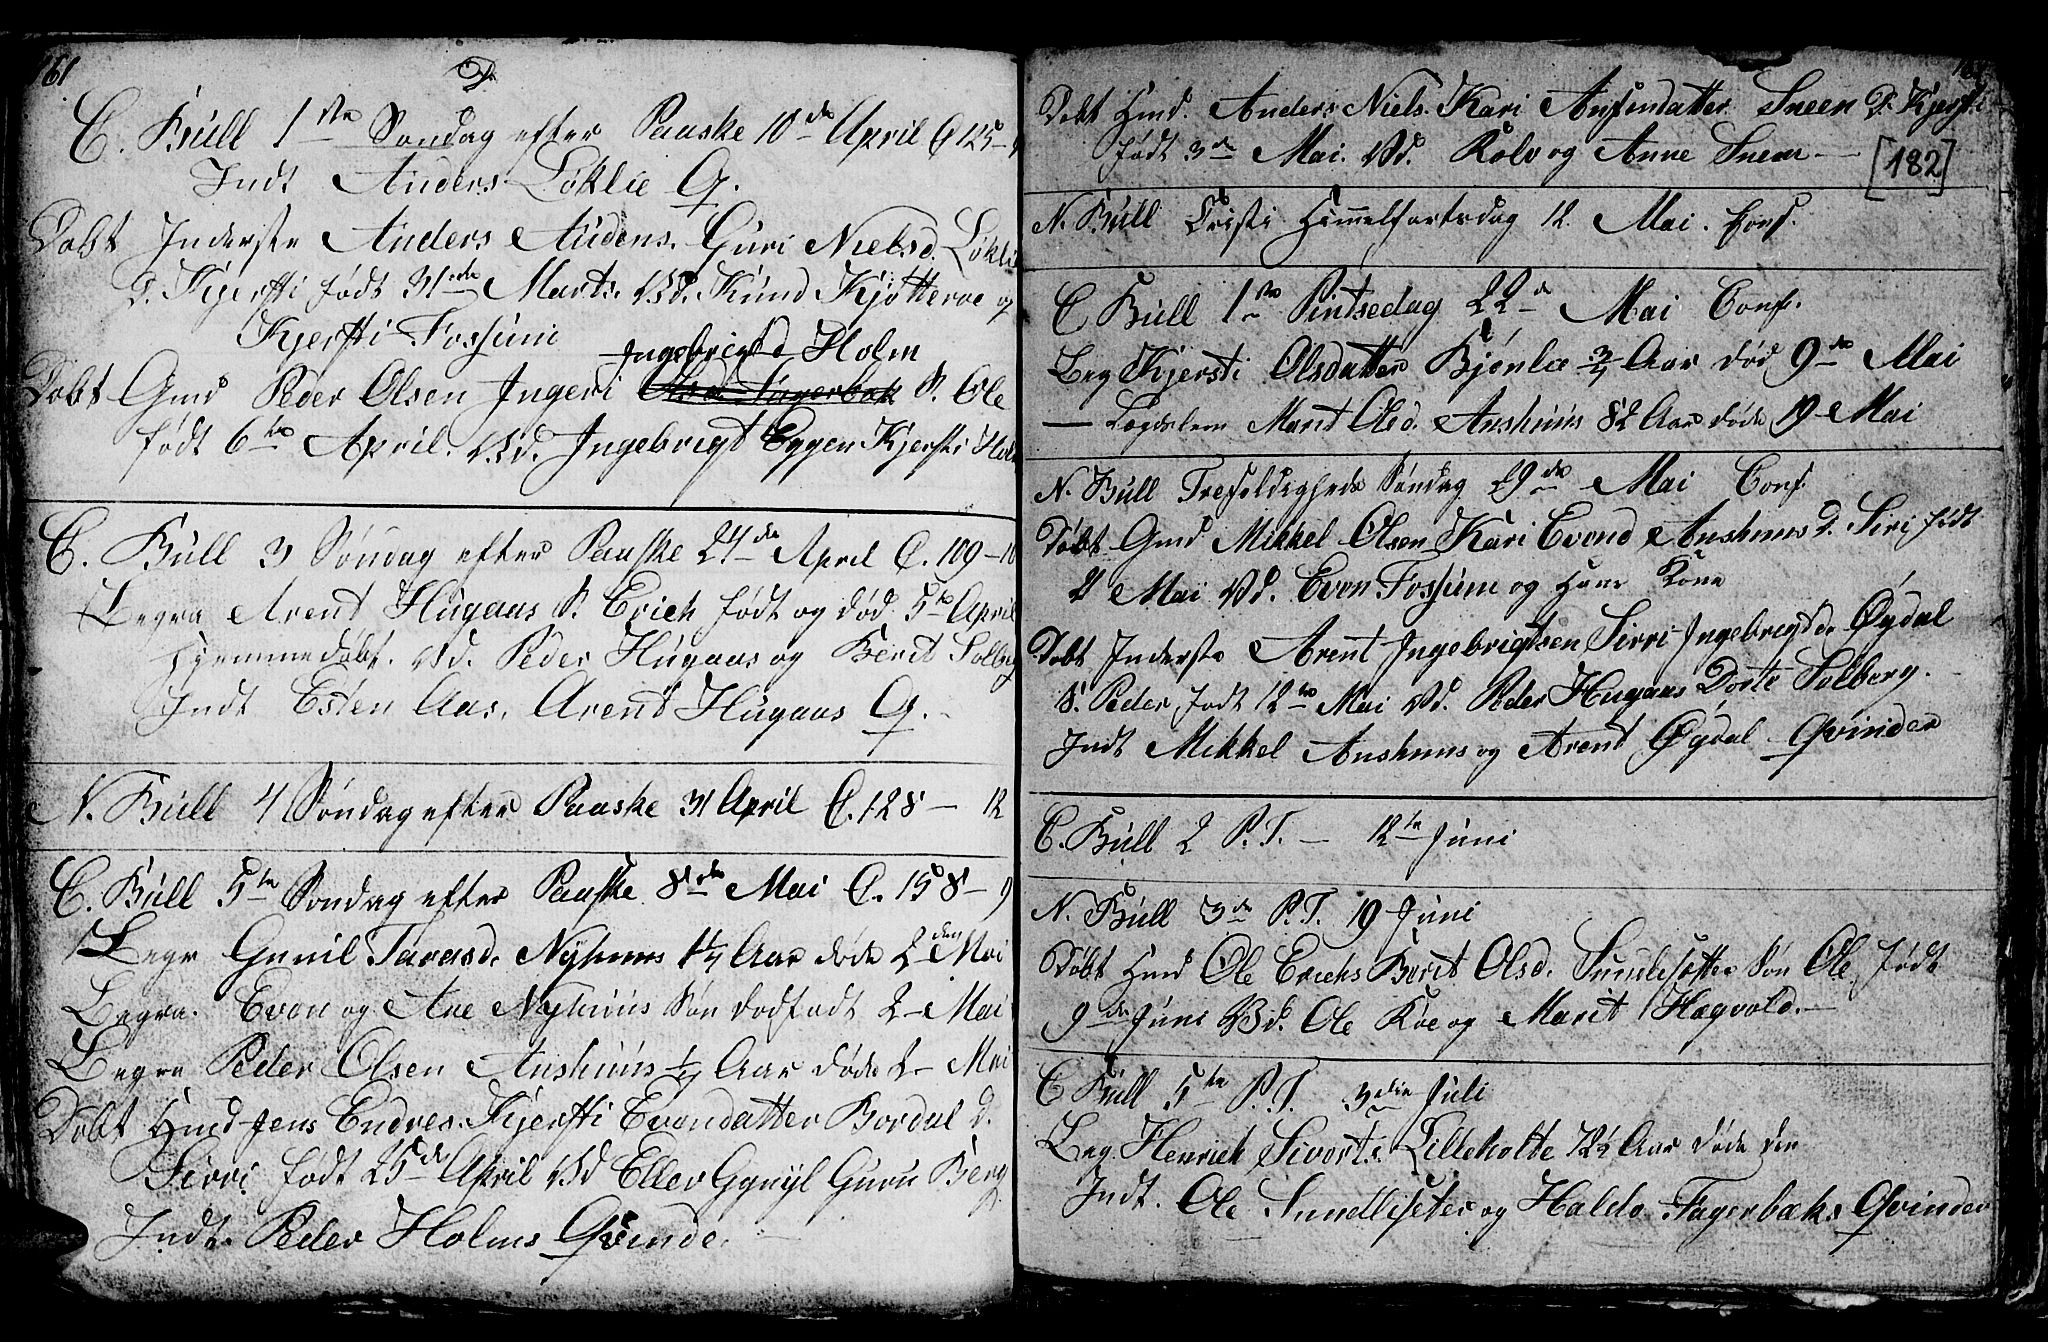 161
C. Bull 1ste Søndag efter Paaske 10de April C 125 - 9
Indt Anders Løklie Q.
Døbt Inderste Anders Audens. Guri Nielsd. Løklie
D. Kjersti født 31te Marts. Vd. Knud Kjøtterøe og
Kjersti Fossum
Ingebrigtsd Holm
Døbt Gmd Peder Olsen Ingeri S. Ole
født 6te April. Vd. Ingebrigt Eggen Kjersti Holm
C. Bull 3 Søndag efter Paaske 24de April C. 109 - 10
Begra Arent Hugaas S. Erich født og død 5te April
Hjemmedøbt. Vd. Peder Hugaas og Berit Solberg
Indt Esten Aas, Arent Hugaas Q.
N. Bull 4 Søndag efter Paaske 31 April C. 128 - 12
C. Bull 5te Søndag efter Paaske 8de Mai C. 158 - 9
Begr Gunil Tarasd. Nyhuus 1¼ Aar døde 2den Mai
Begra. Even og Ane Nyhuus Søn dødfødt 2 - Mai
Begra Peder Olsen Anshuus ¼ Aar døde 2 - Mai
Døbt Hmd Jens Endres. Kjersti Evendatter Bordal D.
Sirri født 25de April Vd Eller Gynyl Guru Berg
Indt. Peder Holms Qvinde.
Døbt Hmd. Anders Niels. Kari Ansendatter Sneen D. Kjersti
født 3de Mai. Vd. Rolv og Anne Sneen
[182]
N. Bull Cristi Himmelfartsdag 12. Mai. Conf.
C Bull 1ste Pintsedag 22de Mai Conf.
Beg Kjersti Olsdatter Bjønlie ¾ Aar død 9de Mai
— Lægdslem Marit Olsd. Anshuus 82 Aar døde 19 Mai
N. Bull Trefoldigheds Søndag 29de Mai Conf
Døbt Gmd Mikkel Olsen Kari Evend Anshuus D. Siri født
21 Mai Vd. Even Fossum og Hans Kone
Døbt Inderste Arent Ingebrigtsen Sirri Ingebrigtsd. Øydal
S. Peder, født 12te Mai Vd. Peder Hugaas Dorte Solberg.
Indt Mikkel Anshuus og Arent Øydal Qvinder
C. Bull 2 P. T. — 12te Juni
N. Bull 3de P. T. 19 Juni
Døbt Hmd Ole Erichs Berit Olsd. Sundlisetter Søn Ole, født
9de Juni Vd. Ole Køe og Marit Hægvold.
C Bull 5te P. T. 3die Juli
Beg. Henrich Siverts. Lilleholte 72½ Aar døde den
Indt. Ole Sundliseter og Haldo Fagerbæks Qvinder